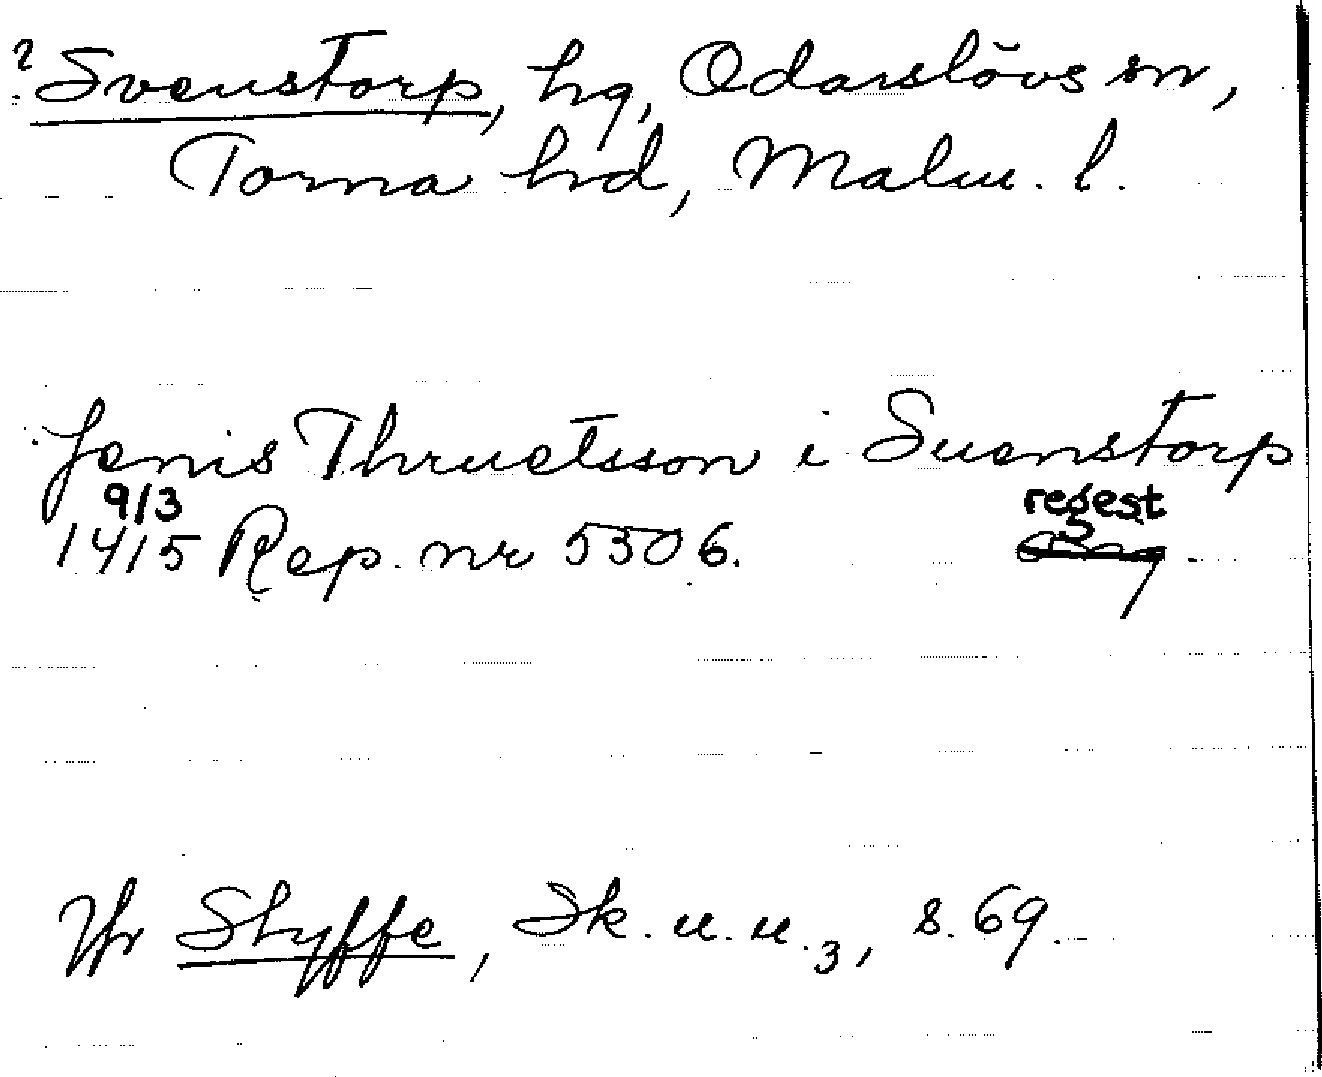 ? Svenstorp, hg, Odarslövs sn,
Torna hd, Malm. l.
Jenis Thruetsson i Suenstorp
9/3 regest
1415 Rep. nr 5506.
Jfr Styffe, Sk. u. u. 3, s. 69.